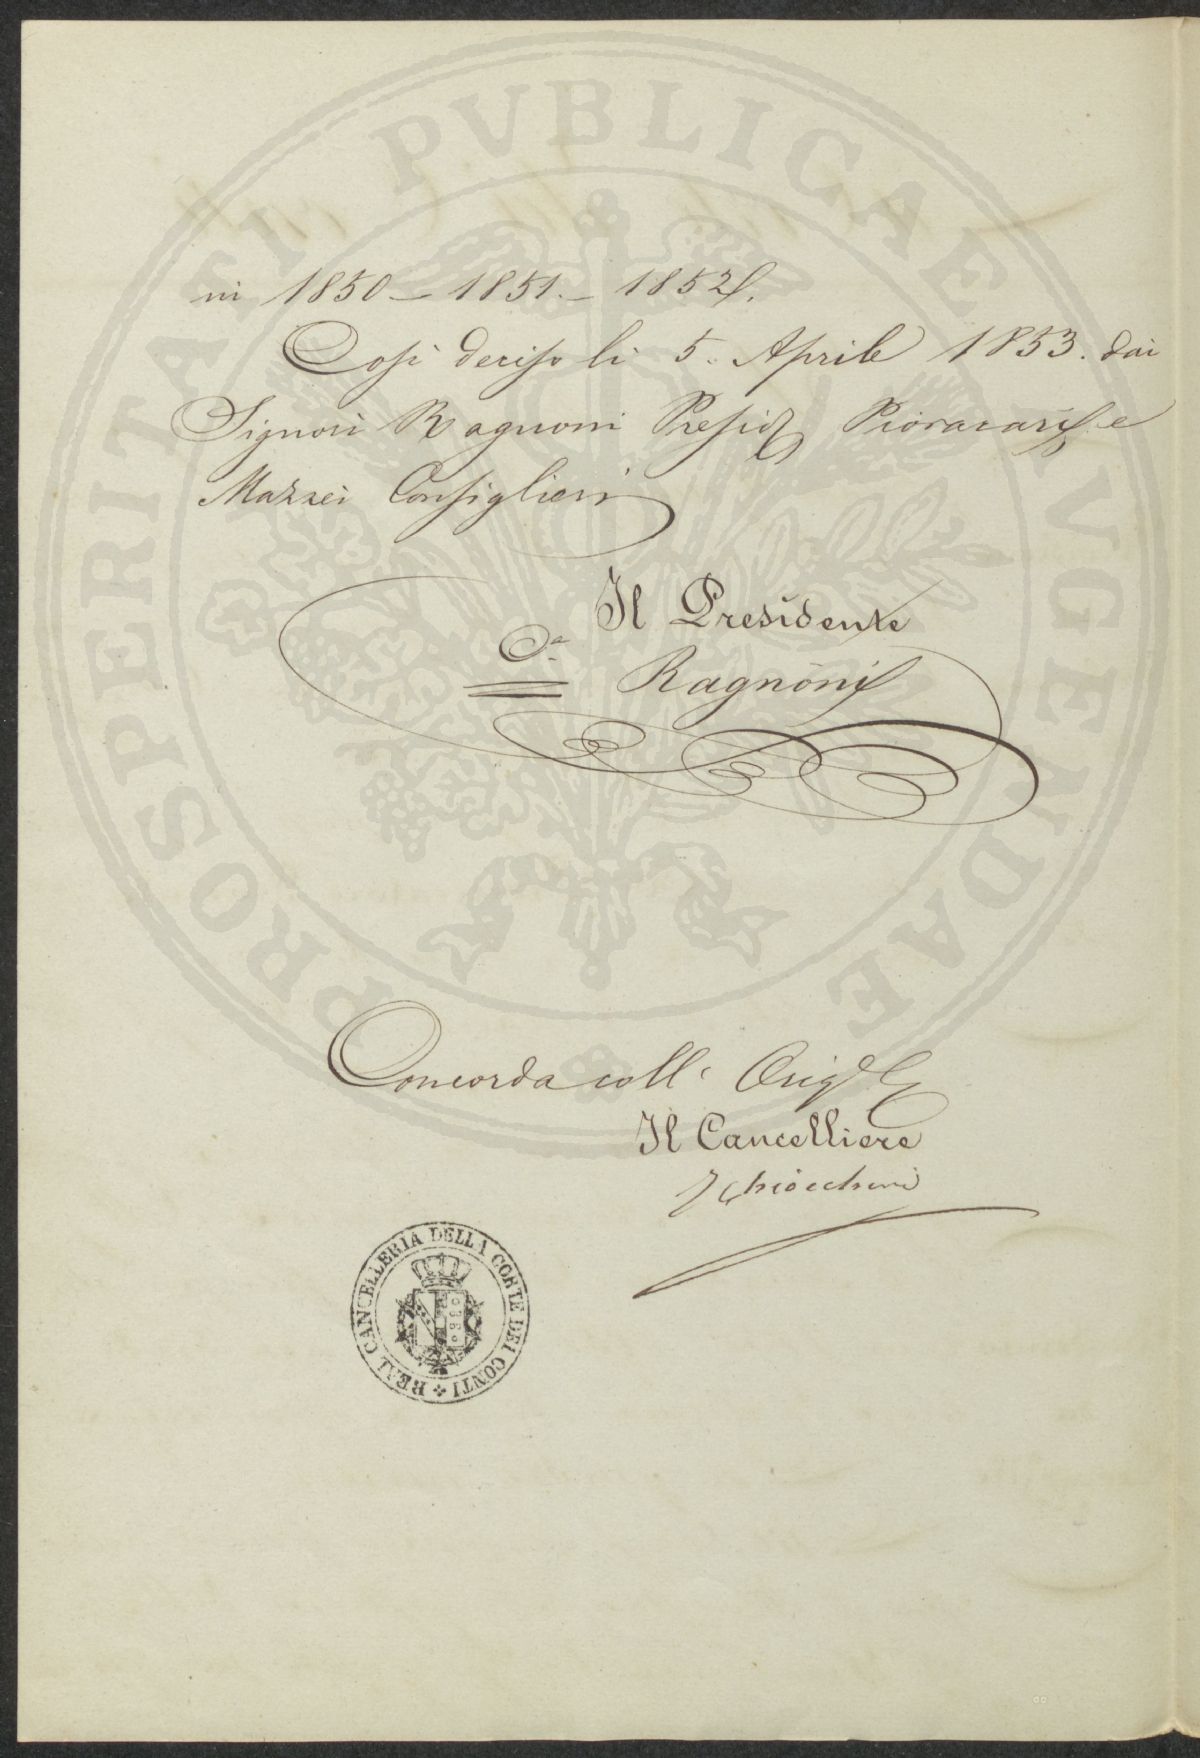 ni 1850 – 1851. – 1852.
Così deciso li 5. Aprile 1853. dai
Signori Ragnoni Presid.e e
Mazzei Consiglieri
Il Presidente
Ragnoni
Concorda coll' Orig.le
Il Cancelliere
REAL CANCELLERIA DELLA CORTE DEI CONTI
PROSPERITATI PVBLICAE AVGENDAE